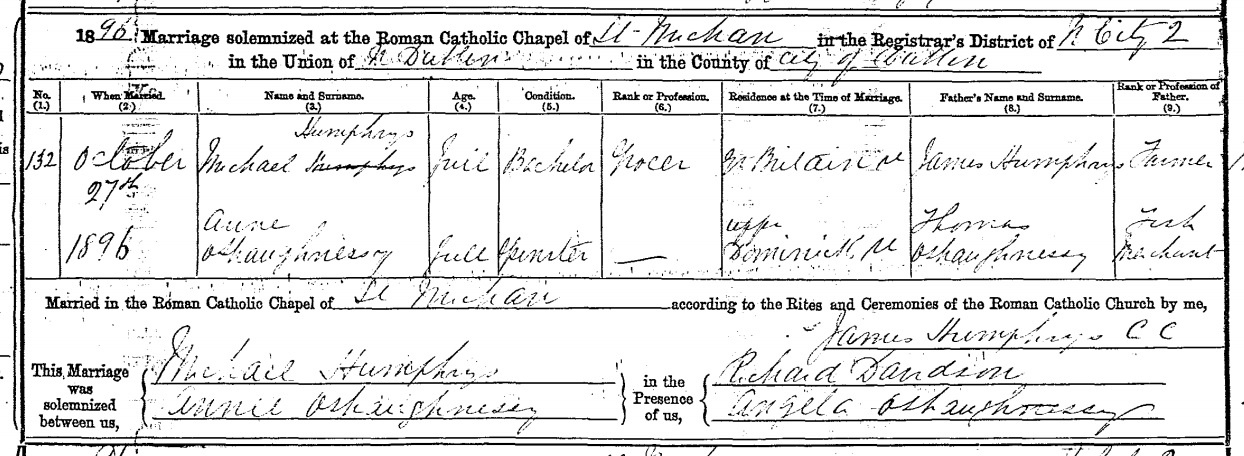 1896. Marriage solemnized at the Roman Catholic Chapel of St. Michan in the Registrar's District of N City 2
in the Union of N Dublin in the County of City of Dublin
No. (1.) When Married. (2.) Name and Surname. (3.) Age. (4.) Condition. (5.) Rank or Profession. (6.) Residence at the Time of Marriage. (7.) Father's Name and Surname. (8.) Rank or Profession of Father. (9.)
Humphrys
132 October Michael Humphrys Full Bachelor Grocer Gt Britain st James Humphrys Farmer
27th
Anne upper Thomas Fish
1896 OShaughnessy Full Spinster — Dominick st OShaughnessy Merchant
Married in the Roman Catholic Chapel of St Michan according to the Rites and Ceremonies of the Roman Catholic Church by me,
James Humphrys C C
This Marriage was solemnized between us, { Michael Humphrys } in the Presence of us, { Richard Davidson
Annie OShaughnessy Angela OShaughnessy